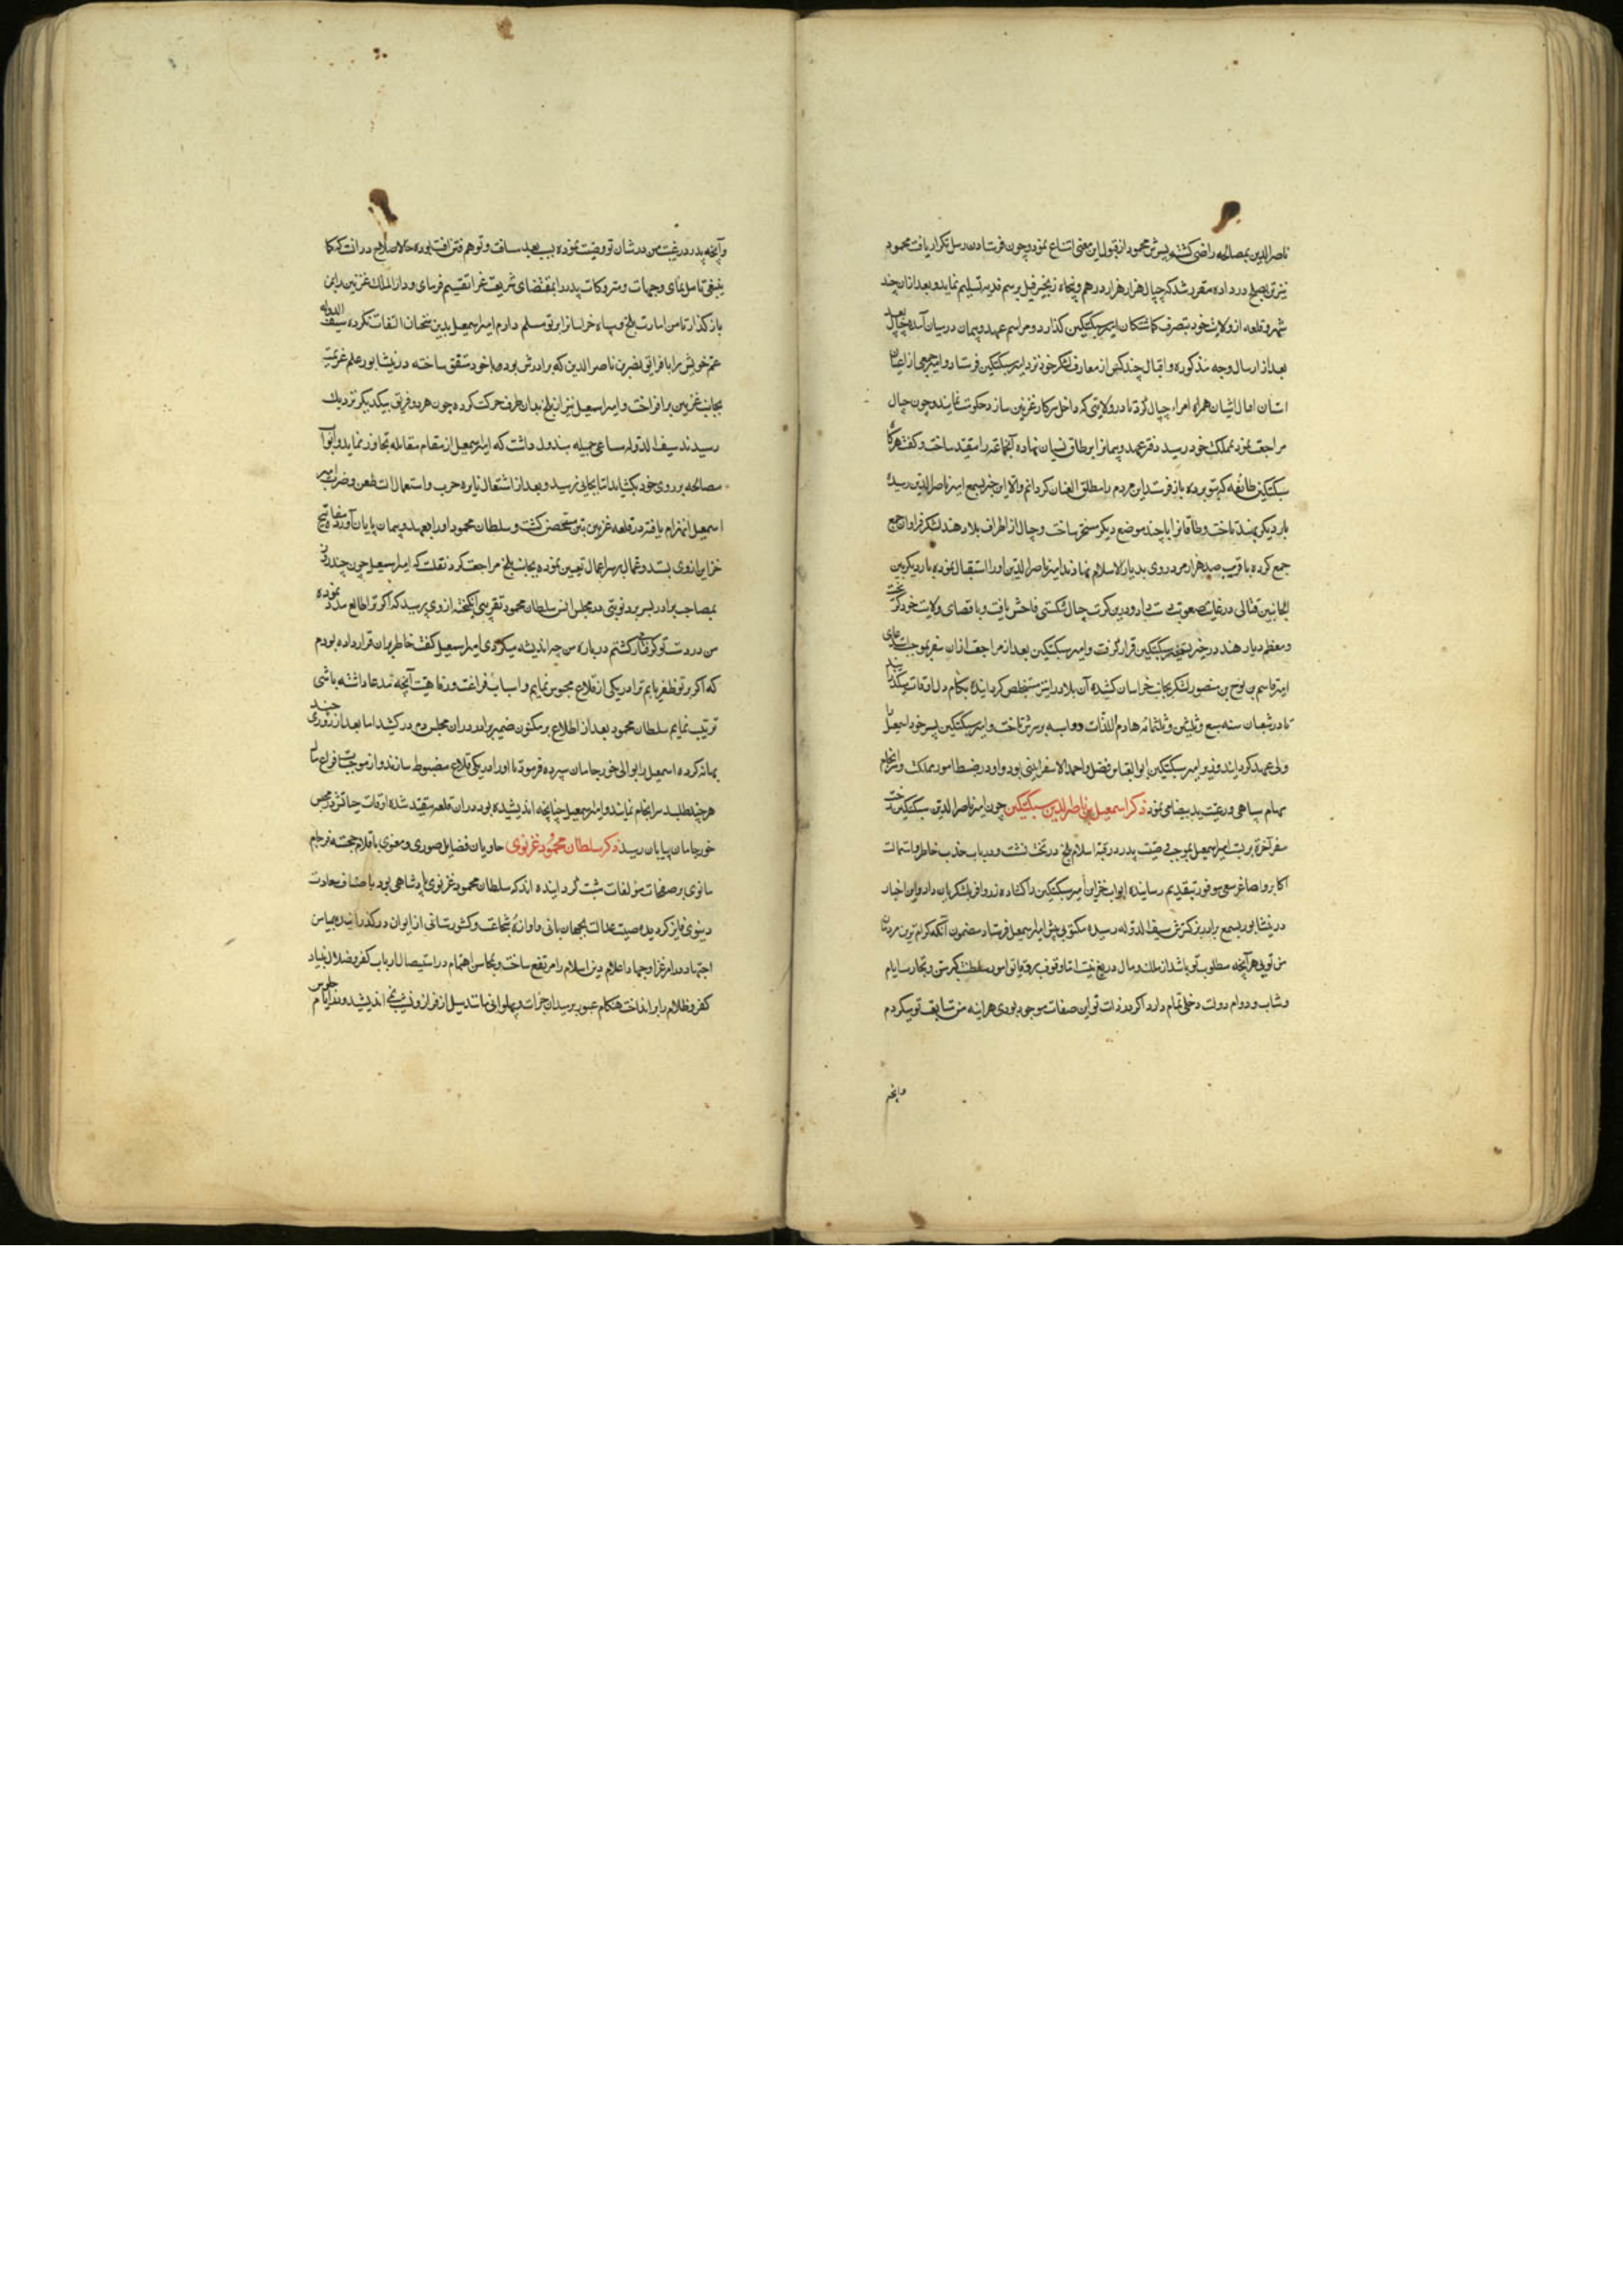 ناصرالدین بمصالحه راضی کشته پسرش محمود از قبول این معنی امتناع نمود و چون فرستادن رسل تکرار یافت محمود
نیز تن بصلح در داده مقرر شد که جیپال هزار هزار درهم و پنجاه زنجیر فیل برسم فدیه تسلیم نماید و بعد از آن چند
شهر و قلعه از ولایت خود بتصرف کماشتکان امیر سبکتکین کذارد و مراسم عهد و پیمان در میان آمده جیپال
بعد از ارسال وجه مذکوره و اقبال چند کس از معارف لشکر خود نزد امیر سبکتکین فرستاد و امیر جمعی از اعیان
همراه امراء جیپال کرد تا در ولایتی که داخل سرکار غزنین سازد حکومت نمایند و چون جیپال
مراجعت نمود بمملکت خود رسید دفتر عهد و پیمانرا بر طاق نسیان نهاده آنجماعة را مقید ساخت و کفت هرکاه
سبکتکین طائفه که بنو برده باز فرستد این مردم را مطلق العنان کردانم والا این خبر بسمع امیر ناصرالدین رسیده
بار دیکر بهند تاخت و طاقانرا با چند موضع دیکر مسخر ساخت و جیپال از اطراف بلاد هند لشکر فراوان جمع
جمع کرده با قریب صد هزار مرد روی بدیار الاسلام نهادند امیر ناصرالدین او را استقبال نموده بار دیکر بین
الجانبین قتالی در غایت صعوبت دست داد و درین کرت جیپال شکستی فاحش یافت و باقصای ولایت خود کریخت
و معظم دیار هند در حیز تسخیر سبکتکین قرار کرفت و امیر سبکتکین بعد از مراجعت از آن سفر بموجب استدعای
امیر قاسم بن نوح بن منصور لشکر بجانب خراسان کشیده آن بلاد را نیز مستخلص کردانیده بکام دل اوقات میکذرانید
تا در شعبان سنه سبع و ثلثین و ثلثمائه هادم اللذات بر سرش تاخت و امیر سبکتکین پسر خود اسمعیل را
ولی عهد کردانید و وزیر امیر سبکتکین ابو العباس فضل بن احمد الاسفراینی بود و او در ضبط امور مملکت و سرانجام
مهام سپاهی و رعیت ید بیضا می نمود ذکر اسمعیل بن ناصرالدین سبکتکین چون امیر ناصرالدین سبکتکین رخت
سفر آخرة بربست امیر اسمعیل بموجب وصیت پدر در قبة اسلام بلخ در تخت نشست و در باب جذب خاطر و استمالت
اکابر و اصاغر سعی موفور بتقدیم رسانیده ابواب خزاین امیر سبکتکین را کشاده زر وافر بلشکریان داد و این اخبار
در نیشابور بسمع برادر بزرکترش سیف الدوله رسیده مکتوبی پیش امیر اسمعیل فرستاد مضمون آنکه کرامی ترین مردمان
من توئی هر آنچه مطلوب تو باشد از ملک و مال دریغ نیست اما وقوف بر دقایق امور سلطنت و کبر سن و تجارب ایام
و ثبات و دوام دولت دخلی تمام دارد اکر در ذات تو این صفات موجود بودی هر اینه من متابعت تو میکردم
وانچه
وآنچه پدر در غیبت من در شان تو وصیت نموده بسبب بعد مسافت و توهم فتن و آفت بوده حالا صلاح در آنست که
تامل نمای و جهات و متروکات پدر را بمقتضای شریعت غرا تقسیم فرمای و دار الملک غزنین را بمن
باز کذار تا من امارت بلخ و سپاه خراسانرا بر تو مسلم دارم امیر اسمعیل بدین سخنان التفات نکرده سیف الدوله
عم خویش بغراجق و نصر بن ناصرالدین که برادرش بود با خود متفق ساخته در نیشابور علم عزیمت
بجانب غزنین برافراخت و امیر اسمعیل نیز از بلخ بدان طرف حرکت کرده چون هر دو فریق بیکدیکر نزدیک
رسیدند سیف الدوله مساعی جمیله مبذول داشت که امیر اسمعیل از مقام مقاتله تجاوز نماید و ابواب
مصالحه بر روی خود بکشاید اما بجایی نرسید و بعد از اشتعال نایره حرب و استعمال آلت طعن و ضرب امیر
اسمعیل انهزام یافته در قلعه غزنین متحصن کشت و سلطان محمود او را بعهد و پیمان پایان آورد و مفاتیح
خزاین از وی بستد و عمال بر سر اعمال تعیین نموده بجانب بلخ مراجعت کرد نقلست که امیر اسمعیل چون چند روز
بمصاحب برادر بسر برد نوبتی در مجلس انس سلطان محمود تقریبی انکیخته از وی پرسید که اکر ترا طالع مدد نموده
من در دست تو کرفتار کشتم درباره من چه اندیشه میکردی امیر اسمعیل کفت خاطر بر آن قرار داده بودم
که اکر بر تو ظفر یابم ترا در یکی از قلاع محبوس نمایم و اسباب فراغت و رفاهیت آنچه مدعا داشته باشی
ترتیب نمایم سلطان محمود بعد از اطلاع بر مکنون ضمیر برادر در آن مجلس دم در کشید اما بعد از روزی چند
بهانه کرده اسمعیل را بوالی خورجانان سپرده فرمود تا او را در یکی قلاع مضبوط سازند و از موجبات فراغ بال
هر چه طلبد سرانجام نمایند و امیر اسمعیل چنانچه اندیشیده بود در آن قلعه مقید شده اوقات حیاتش در حبس
خورجانان بپایان رسید ذکر سلطان محمود غزنوی حاویان فضایل صوری و معنوی باقلام خجسته فرجام
مانوی بر صفحات مؤلفات ثبت کردانیده اند که سلطان محمود غزنوی پادشاهی بود باصناف سعادت
دینوی فایز کردیده صیت عدالت بجهانبانی و اوازهٔ شجاعت و کشورستانی از ایوان در کذرانیده بمیامن
اجتهاد در امر غزا و جهاد اعلام دین اسلام را مرتفع ساخت و بمحاسن اهتمام در استیصال ارباب کفر و ضلال بنیاد
کفر و ظلام را برانداخت هنکام عبور بر میدان جرات و پهلوانی مانند سیل از فراز و نشیب نمی اندیشید و در ایام جلوس